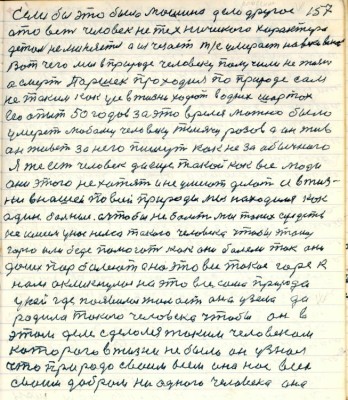 Если бы это была машина дело другое 157
это ведь человек не техничного характера
детал не меняется а исчезает т/е умирает на веки веков
Вот чего мы в природе человеку получили не жить
а смерть Паршек проходил по природе сам
не таким как усе в жизни ходят в одних шортах
Его опыт 50 годов за это время можно было
умереть любому человеку тысячу разов а он жив
он живет за него пишут как не за обычного
Я же есть человек да еще такой как все люди
они этого не хотят и не умеют делать и в жиз-
ни в нашей по всей природы мы находимся как
один больные. а чтобы не болеть мы таких средств
не имеем у нас нема такого человека чтобы этому
горю или беде помогать как они болели так они
до сих пор болеют а на это все такое горе к
нам откликнулась на это все сама природа
у ней где появилась жалость она узела да
родила такого человека чтобы он в
этом деле сделался таким человеком
которого в жизни не было он узнал
что природа своим всем она нас всех
своим добром ни одного человека она